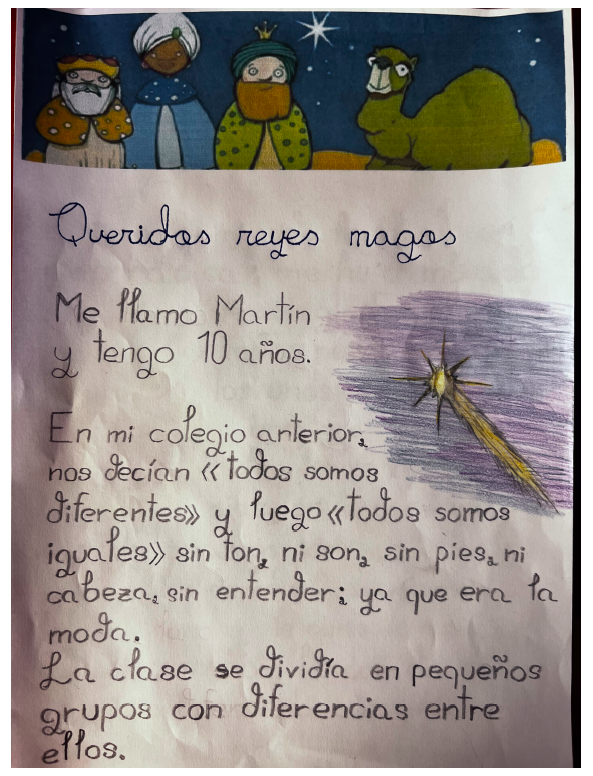 Queridos reyes magos
Me llamo Martín
y tengo 10 años.
En mi colegio anterior,
nos decían «todos somos
diferentes» y luego «todos somos
iguales» sin ton, ni son, sin pies, ni
cabeza, sin entender; ya que era la
moda.
La clase se dividía en pequeños
grupos con diferencias entre
ellos.